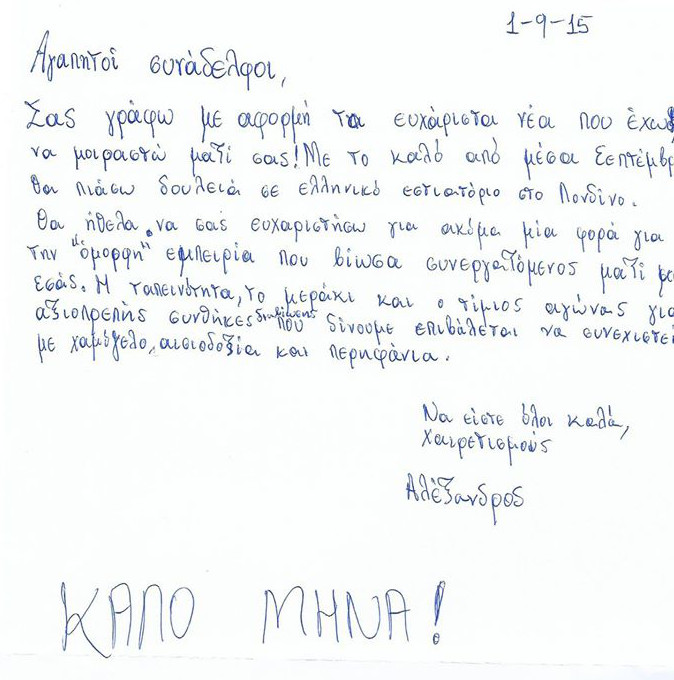 1-9-15
Αγαπητοί συνάδελφοι,
Σας γράφω με αφορμή τα ευχάριστα νέα που έχω
να μοιραστώ ματί σας! Με το καλό από μέσα Σεπτέμβρ
θα πιάσω δουλειά σε ελληνικό εστιατόριο στο Λονδίνο.
Θα ήθελα να σας ευχαριστήσω για ακόμα μία φορά για
την "όμορφη" εμπειρία που βίωσα συνεργατόμενος ματί με
εσάς. Η ταπεινότητα, το μεράκι και ο τίμιος αγώνας για
αξιοπρεπής συνθήκες διαβίωσης που δίνουμε επιβάλεται να συνεχιστεί
με χαμόγελο, αισιοδοξία και περηφάνια.
Να είστε όλοι καλά,
χαιρετισμούς
Αλέξανδρος
ΚΑΛΟ ΜΗΝΑ!